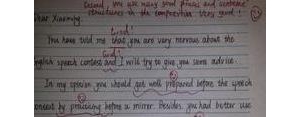 Second, you use many good phrases and sentence
structures in the composition. Very good!
Dear Xiaoming,
Good!
You have told me that you are very nervous about the
Good!
English speech contest and I will try to give you some advice.
In my opinion you should get well prepared before the speech
contest by practising before a mirror. Besides, you had better use